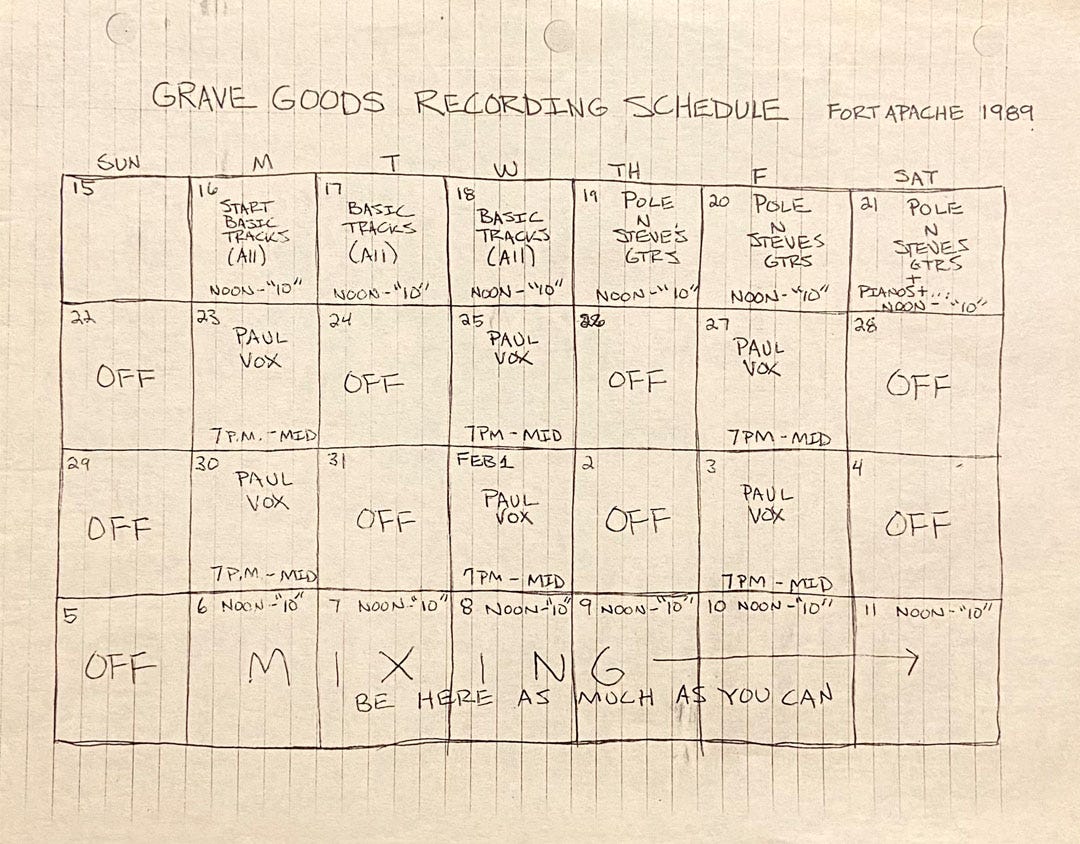 GRAVE GOODS RECORDING SCHEDULE FORT APACHE 1989
SUN M T W TH F SAT
15
16
START
BASIC
TRACKS
(All)
NOON-"10"
17
BASIC
TRACKS
(All)
NOON-"10"
18
BASIC
TRACKS
(All)
NOON-"10"
19 POLE
N
STEVE'S
GTRS
NOON-"10"
20 POLE
N
STEVES
GTRS
NOON-"10"
21 POLE
N
STEVES
GTRS
+
PIANOS+...
NOON-"10"
22
OFF
23
PAUL
VOX
7 P.M. - MID
24
OFF
25
PAUL
VOX
7PM - MID
26
OFF
27
PAUL
VOX
7PM - MID
28
OFF
29
OFF
30
PAUL
VOX
7 P.M - MID
31
OFF
FEB 1
PAUL
VOX
7PM - MID
2
OFF
3
PAUL
VOX
7PM - MID
4
OFF
5
OFF
6 NOON-"10"
7 NOON-"10"
8 NOON-"10"
9 NOON-"10"
10 NOON-"10"
11 NOON-"10"
MIXING
BE HERE AS MUCH AS YOU CAN